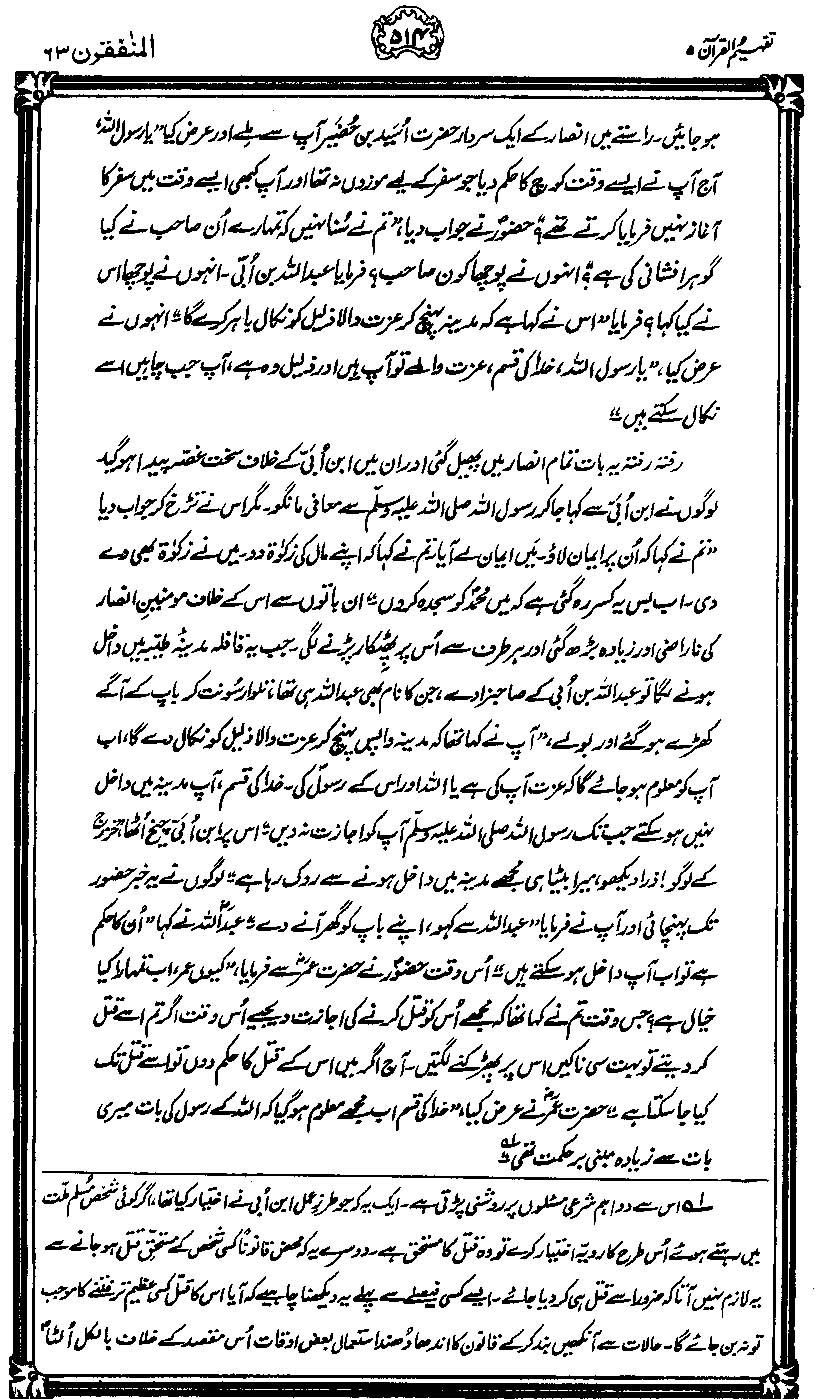 تفہیم القرآن ۵
۵۱۴
المنٰفقون ۶۳
ہو جائیں۔ راستے میں انصار کے ایک سردار حضرت اُسَید بن حُضَیر آپ سے ملے اور عرض کیا ”یا رسول اللہ،
آج آپ نے ایسے وقت کوچ کا حکم دیا جو سفر کے لیے موزوں نہ تھا اور آپ کبھی ایسے وقت میں سفر کا
آغاز نہیں فرمایا کرتے تھے؟“ حضورؐ نے جواب دیا، ”تم نے سُنا نہیں کہ تمہارے اُن صاحب نے کیا
گوہر افشانی کی ہے؟“ انہوں نے پوچھا کون صاحب؟ فرمایا عبداللہ بن اُبیّ۔ انہوں نے پوچھا اس
نے کیا کہا؟ فرمایا ”اس نے کہا ہے کہ مدینہ پہنچ کر عزت والا ذلیل کو نکال باہر کرے گا“ انہوں نے
عرض کیا، ”یا رسول اللہ، خدا کی قسم، عزت والے تو آپ ہیں اور ذلیل وہ ہے، آپ جب چاہیں اسے
نکال سکتے ہیں“
رفتہ رفتہ یہ بات تمام انصار میں پھیل گئی اور ان میں ابن اُبیّ کے خلاف سخت غصہ پیدا ہو گیا۔
لوگوں نے ابن اُبیّ سے کہا جا کر رسول اللہ صلی اللہ علیہ وسلم سے معافی مانگو۔ مگر اس نے تڑخ کر جواب دیا
”تم نے کہا کہ اُن پر ایمان لاؤ۔ میں ایمان لے آیا۔ تم نے کہا کہ اپنے مال کی زکوٰۃ دو۔ میں نے زکوٰۃ بھی دے
دی۔ اب بس یہ کسر رہ گئی ہے کہ میں محمدؐ کو سجدہ کروں“ ان باتوں سے اس کے خلاف مومنینِ انصار
کی ناراضی اور زیادہ بڑھ گئی اور ہر طرف سے اُس پر پھٹکار پڑنے لگی۔ جب یہ قافلہ مدینۂ طیبہ میں داخل
ہونے لگا تو عبداللہ بن اُبی کے صاحبزادے، جن کا نام بھی عبداللہ ہی تھا، تلوار سُونت کر باپ کے آگے
کھڑے ہو گئے اور بولے، ”آپ نے کہا تھا کہ مدینہ واپس پہنچ کر عزت والا ذلیل کو نکال دے گا، اب
آپ کو معلوم ہو جائے گا کہ عزت آپ کی ہے یا اللہ اور اس کے رسولؐ کی۔ خدا کی قسم، آپ مدینہ میں داخل
نہیں ہو سکتے جب تک رسول اللہ صلی اللہ علیہ وسلم آپ کو اجازت نہ دیں“ اس پر ابن اُبیّ چیخ اُٹھا ”خزرج
کے لوگو! ذرا دیکھو، میرا بیٹا ہی مجھے مدینہ میں داخل ہونے سے روک رہا ہے“ لوگوں نے یہ خبر حضور
تک پہنچائی اور آپ نے فرمایا ”عبداللہ سے کہو، اپنے باپ کو گھر آنے دے“ عبداللہؓ نے کہا ”اُن کا حکم
ہے تو اب آپ داخل ہو سکتے ہیں“ اُس وقت حضورؐ نے حضرت عمرؓ سے فرمایا، ”کیوں عمر، اب تمہارا کیا
خیال ہے؟ جس وقت تم نے کہا تھا کہ مجھے اُس کو قتل کرنے کی اجازت دیجیے اُس وقت اگر تم اسے قتل
کر دیتے تو بہت سی ناکیں اس پر پھڑکنے لگتیں۔ آج اگر میں اس کے قتل کا حکم دوں تو اسے قتل تک
کیا جا سکتا ہے“ حضرت عمرؓ نے عرض کیا، ”خدا کی قسم اب مجھے معلوم ہو گیا کہ اللہ کے رسول کی بات میری
بات سے زیادہ مبنی بر حکمت تھی“ لہ
لہ اس سے دو اہم شرعی مسئلوں پر روشنی پڑتی ہے۔ ایک یہ کہ جو طرزِ عمل ابن اُبی نے اختیار کیا تھا، اگر کوئی شخص مُسلم ملت
میں رہتے ہوئے اُس طرح کا رویہ اختیار کرے تو وہ قتل کا مستحق ہے۔ دوسرے یہ کہ محض قانوناً کسی شخص کے مستحقِ قتل ہو جانے سے
یہ لازم نہیں آتا کہ ضرور اسے قتل ہی کر دیا جائے۔ ایسے کسی فیصلے سے پہلے یہ دیکھنا چاہیے کہ آیا اس کا قتل کسی عظیم تر فتنے کا موجب
تو نہ بن جائے گا۔ حالات سے آنکھیں بند کر کے قانون کا اندھا دُھند استعمال بعض اوقات اُس مقصد کے خلاف بالکل اُلٹا